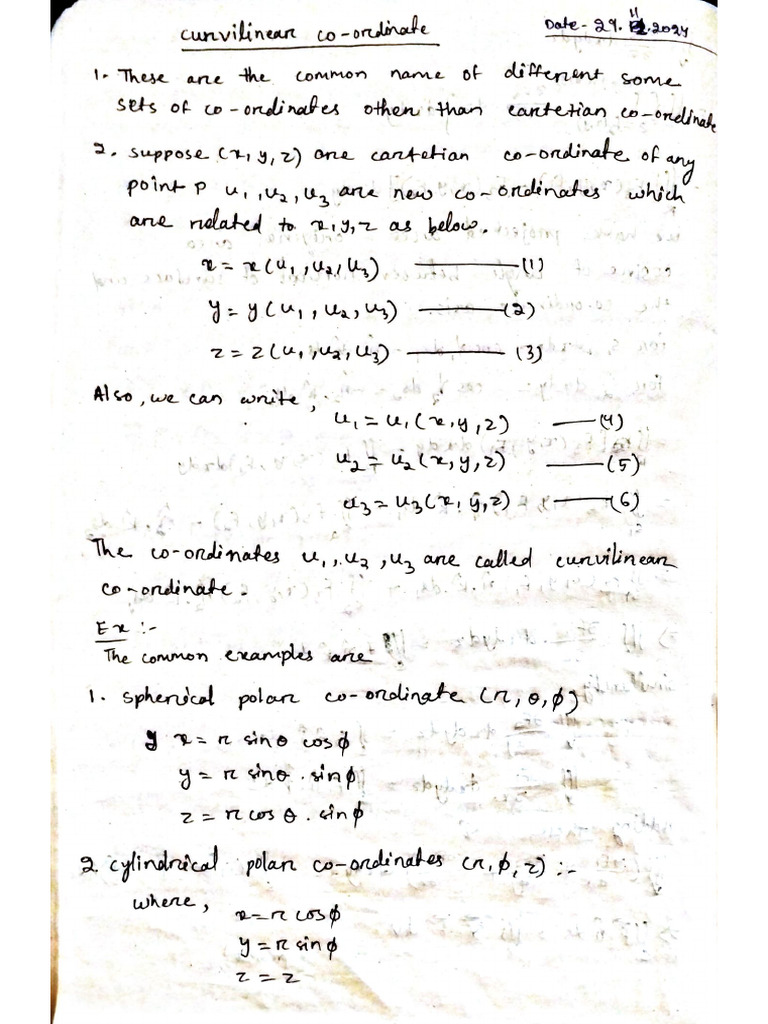 curvilinear co-ordinate
Date - 29.11.2024
1. These are the common name of different some
sets of co-ordinates other than cartetian co-ordinate
2. suppose (x, y, z) are cartetian co-ordinate of any
point P u₁, u₂, u₃ are new co-ordinates which
are related to x, y, z as below.
x = x(u₁, u₂, u₃) ——— (1)
y = y(u₁, u₂, u₃) ——— (2)
z = z(u₁, u₂, u₃) ——— (3)
Also, we can write,
u₁ = u₁(x, y, z) —— (4)
u₂ = u₂(x, y, z) —— (5)
u₃ = u₃(x, y, z) —— (6)
The co-ordinates u₁, u₂, u₃ are called curvilinear
co-ordinate.
Ex :-
The common examples are
1. spherical polar co-ordinate (r, θ, ϕ)
x = r sinθ cosϕ
y = r sinθ . sinϕ
z = r cos θ . sinϕ
2. cylindrical polar co-ordinates (r, ϕ, z) :-
where,
x = r cosϕ
y = r sinϕ
z = z